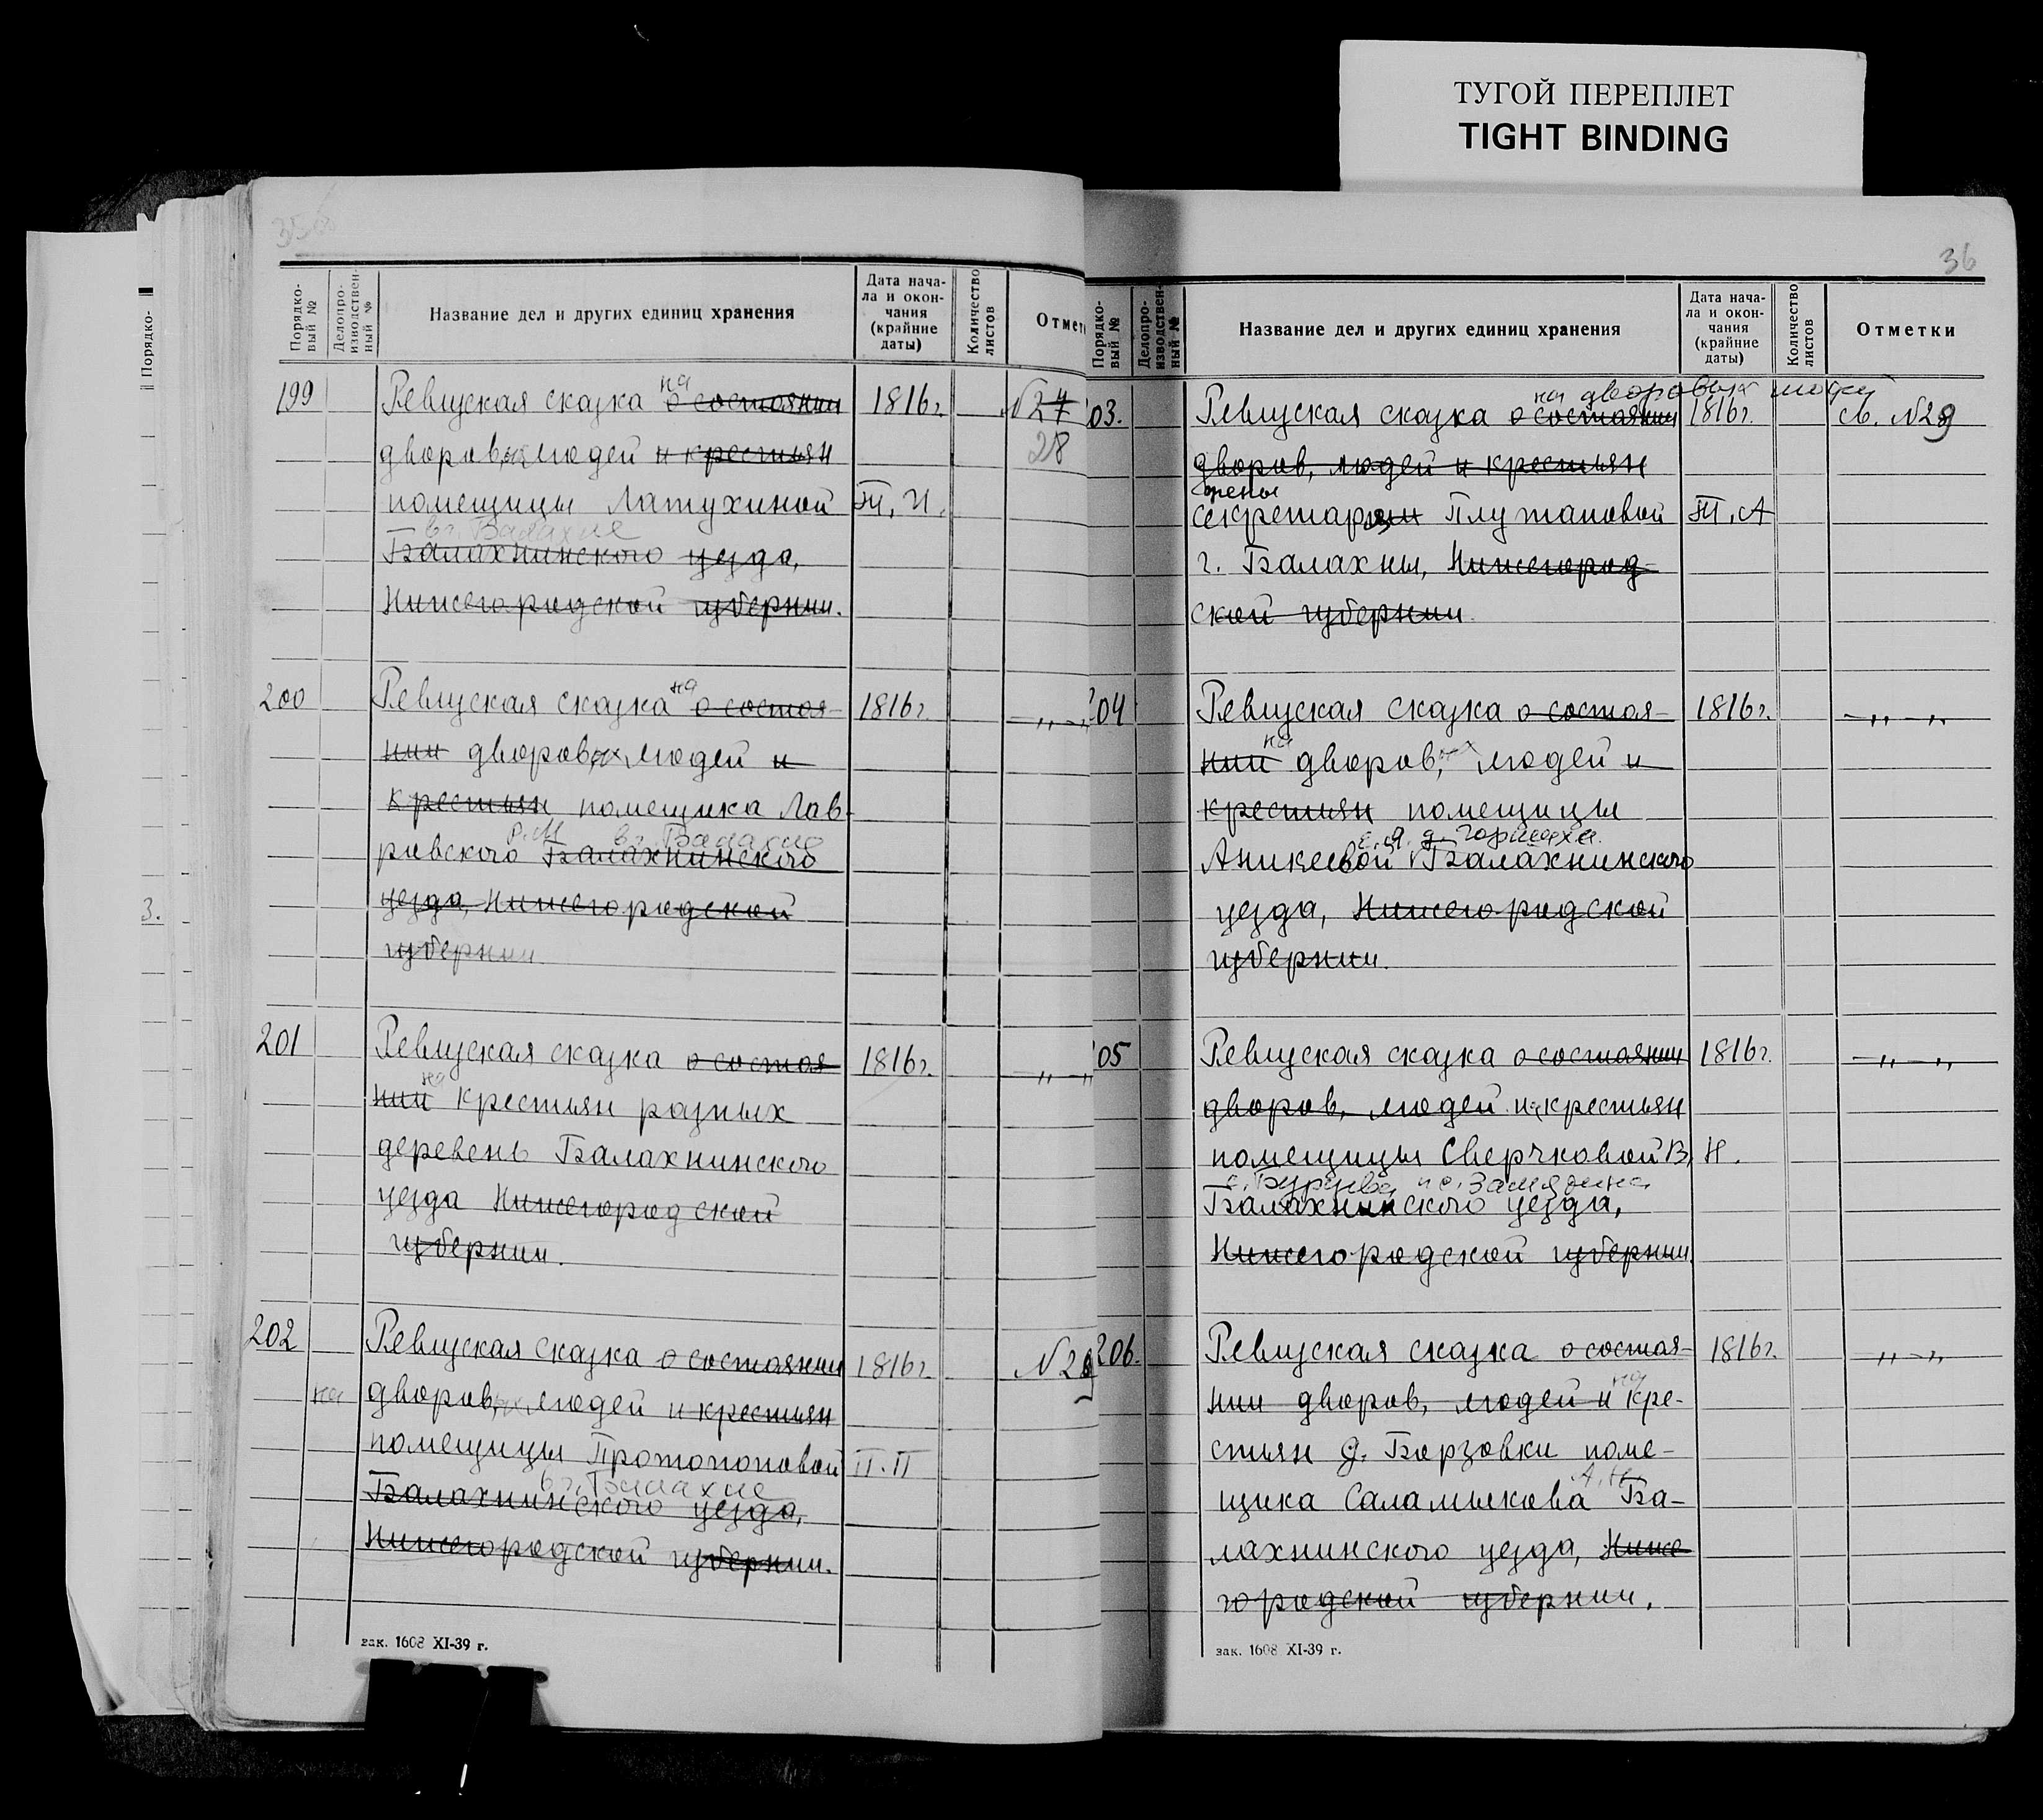 ТУГОЙ ПЕРЕПЛЕТ
TIGHT BINDING
35
Порядко-
вый №
Делопро-
изводствен-
ный №
Название дел и других единиц хранения
Дата нача-
ла и окон-
чания
(крайние
даты)
Количество
листов
Отмет
199
на
Ревизская сказка о состоянии
1816г.
№27
дворов,ых людей и крестьян
28
помещицы Латухиной
Т. И.
в г. Балахне
Балахнинского уезда,
Нижегородской губернии.
200
на
Ревизская сказка о состоя-
1816г.
—„—„
нии дворов,ых людей и
крестьян помещика Лав-
р.М в г. Балахне
ровского Балахнинского
уезда, Нижегородской
губернии.
201
Ревизская сказка о состоя
1816г.
—„—„
на
нии крестьян разных
деревень Балахнинского
уезда Нижегородской
губернии.
202
Ревизская сказка о состоянии
1816г.
№29
на
дворов,ых людей и крестьян
помещицы Протопоповой
П.П
в г. Балахне
Балахнинского уезда,
Нижегородской губернии.
зак. 1608 XI-39 г.
36
Порядко-
вый №
Делопро-
изводствен-
ный №
Название дел и других единиц хранения
Дата нача-
ла и окон-
чания
(крайние
даты)
Количество
листов
Отметки
на дворовых людей
03.
Ревизская сказка о состоянии
1816г.
св. №29
дворов, людей и крестьян
жены
секретаря Плутановой
Т. А
г. Балахны, Нижегород-
ской губернии.
204
Ревизская сказка о состоя-
1816г.
—„—„
на
нии дворов,ых людей и
крестьян помещицы
Е.Я. д.
Аникеевой Балахнинского
уезда, Нижегородской
губернии.
05
Ревизская сказка о состоянии
1816г.
—„—„
дворов, людей и крестьян
помещицы Сверчковой В,
Н.
с. Бурцева и с. Замятина
Балахнинского уезда,
Нижегородской губернии.
206.
Ревизская сказка о состоя-
1816г.
—„—„
на
нии дворов, людей и кре-
стьян д. Борзовки поме-
А.Н.
щика Саламыкова Ба-
лахнинского уезда, Ниже
городской губернии.
зак. 1608 XI-39 г.
Порядко-
3.